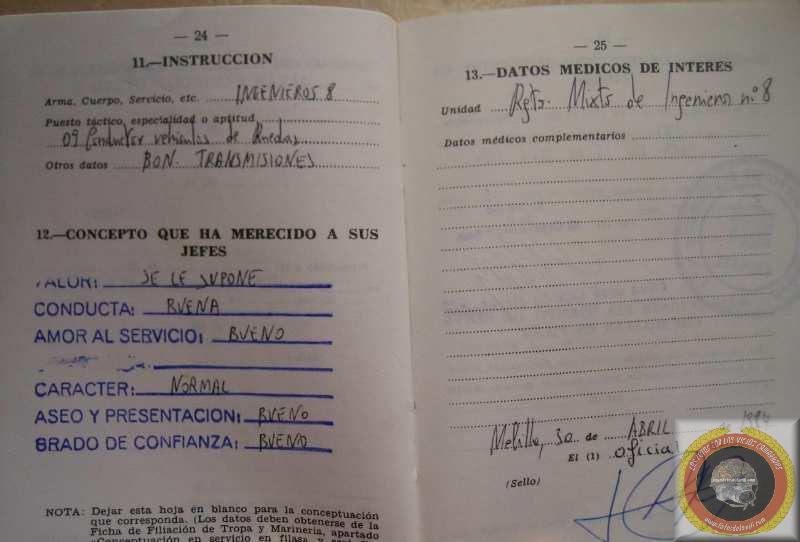 — 24 —
11.—INSTRUCCION
Arma, Cuerpo, Servicio, etc. INGENIEROS 8
Puesto táctico, especialidad o aptitud
09 Conductor vehículos de Ruedas
Otros datos BON. TRANSMISIONES
12.—CONCEPTO QUE HA MERECIDO A SUS
JEFES
VALOR: SE LE SUPONE
CONDUCTA: BUENA
AMOR AL SERVICIO: BUENO
CARACTER: NORMAL
ASEO Y PRESENTACION: BUENO
GRADO DE CONFIANZA: BUENO
NOTA: Dejar esta hoja en blanco para la conceptuación
que corresponda. (Los datos deben obtenerse de la
Ficha de Filiación de Tropa y Marinería, apartado
«Conceptuación en servicio en filas»
— 25 —
13.—DATOS MEDICOS DE INTERES
Unidad Rgto. Mixto de Ingenieros nº 8
Datos médicos complementarios
Melilla, 30 de ABRIL de 1994
El (1) Oficial
(Sello)